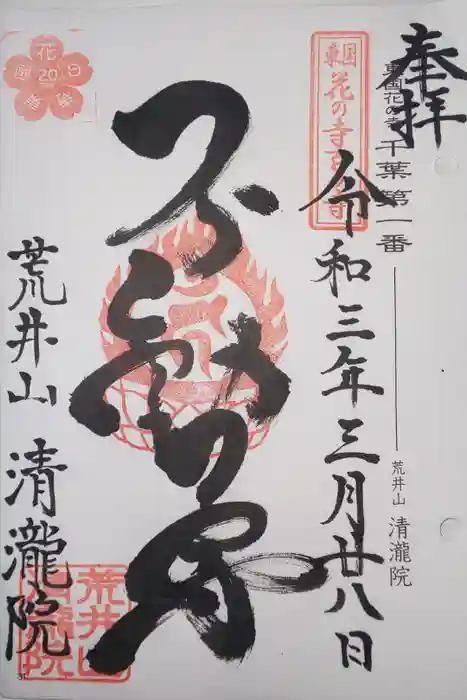 奉拝
東国花の寺 千葉第一番
荒井山 清瀧院
東国花の寺百ヶ寺
令和三年三月廿八日
不動尊
荒井山 清瀧院
花
20
荒井山
清瀧院